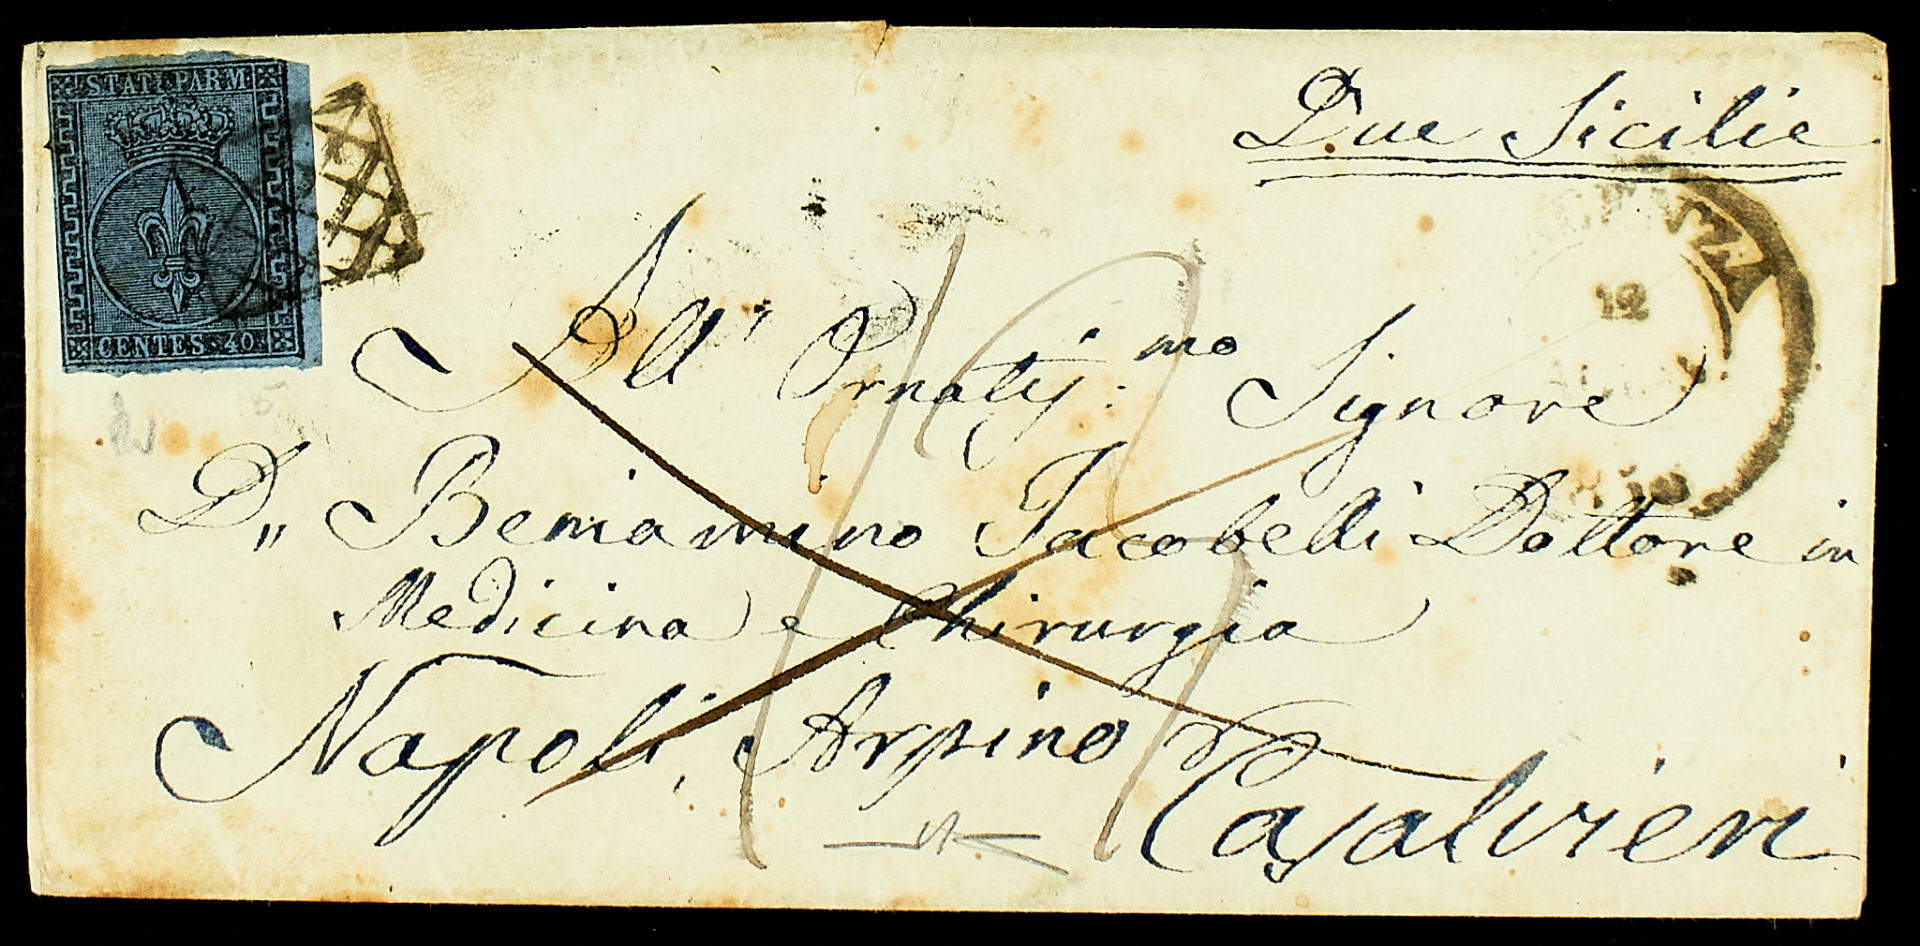 STATI PARM
CENTES 40
Due Sicilie
PIACENZA
12
All' Ornatiss:mo Signore
D,, Beniamino Jacobelli Dottore in
Medicina e Chirurgia
Napoli, Arpino
Casalvieri